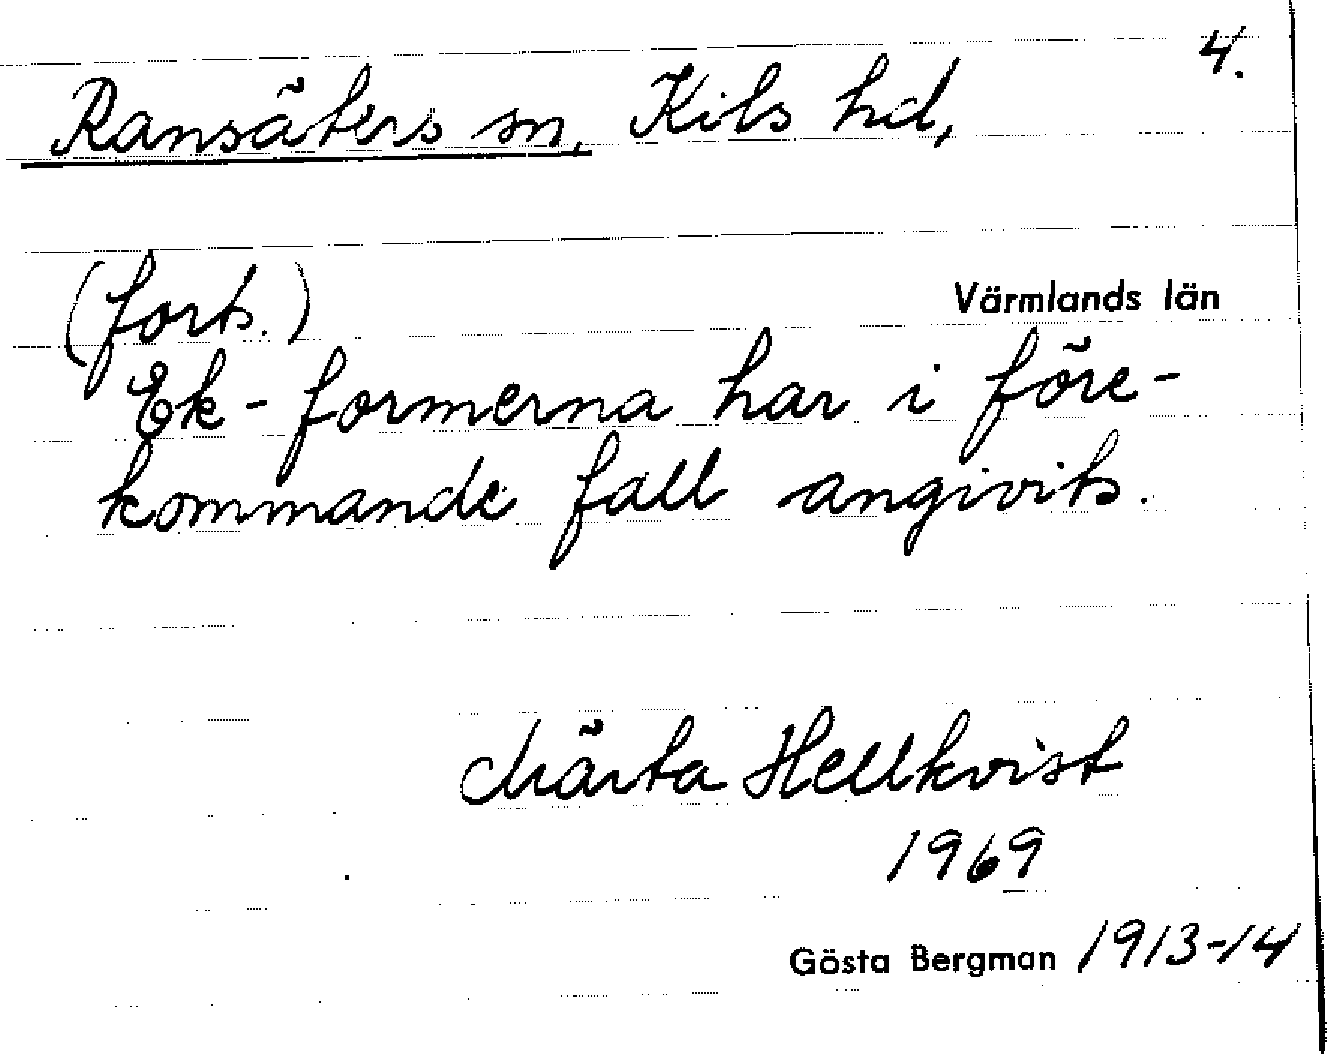 4.
Ransäters sn, Kils hd,
(forts.)
Värmlands län
Ek-formerna har i före-
kommande fall angivits.
Märta Hellkvist
1969
Gösta Bergman 1913-14